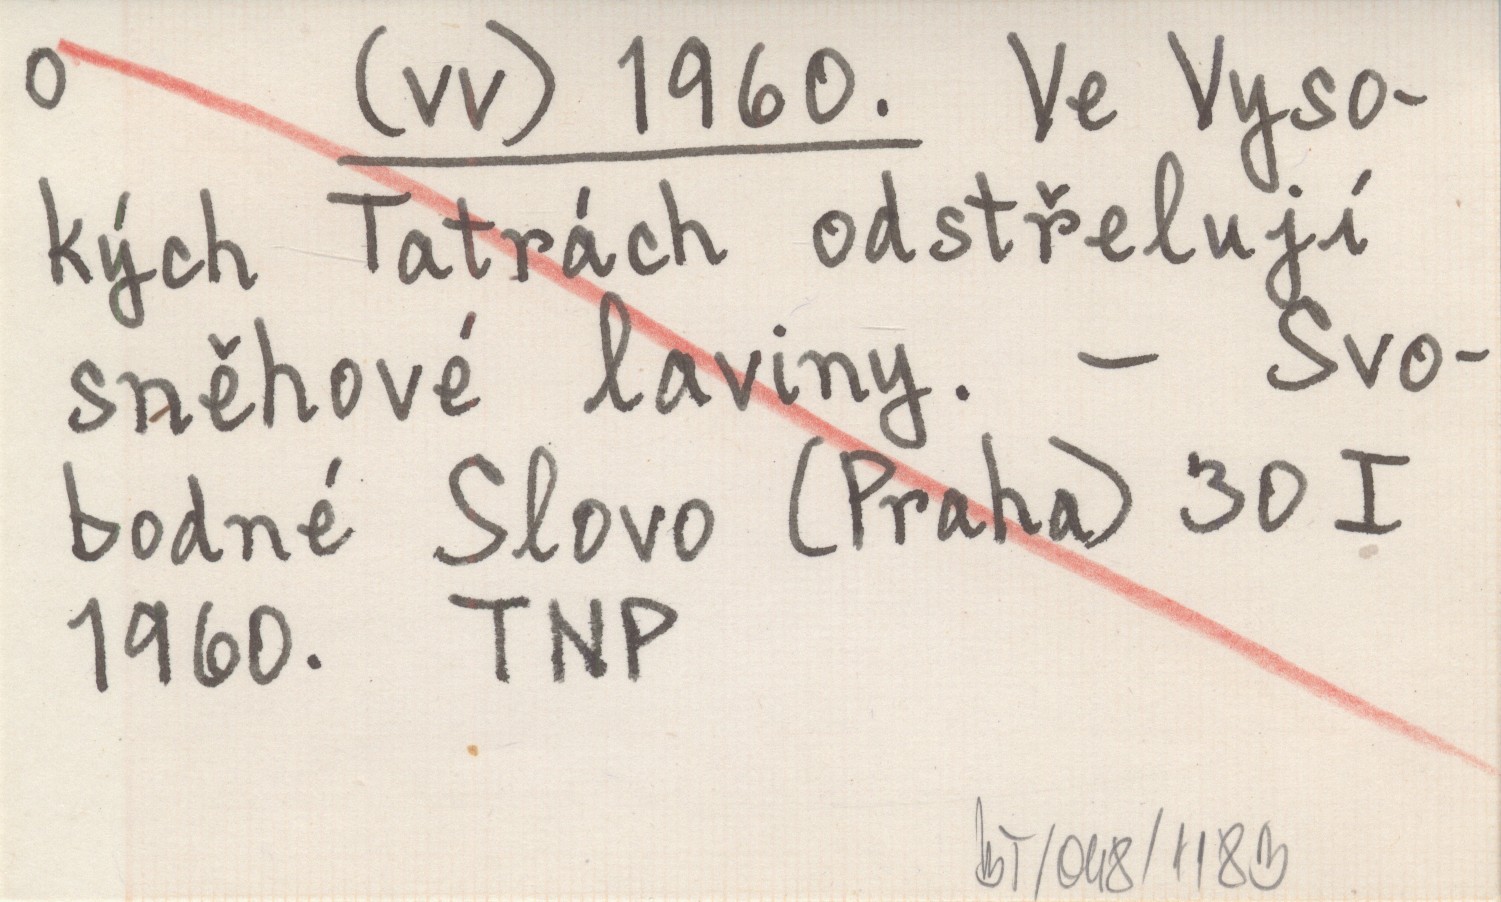 o (vv) 1960. Ve Vyso-
kých Tatrách odstřelují
sněhové laviny. – Svo-
bodné Slovo (Praha) 30 I
1960. TNP